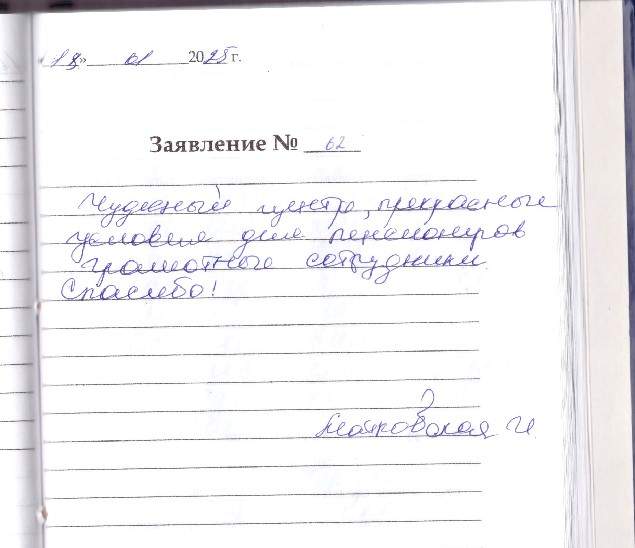 «18» 01 2025 г.
Заявление № 62
Чудесный центр, прекрасные
условия для пенсионеров
грамотные сотрудники
Спасибо!
Матковская И